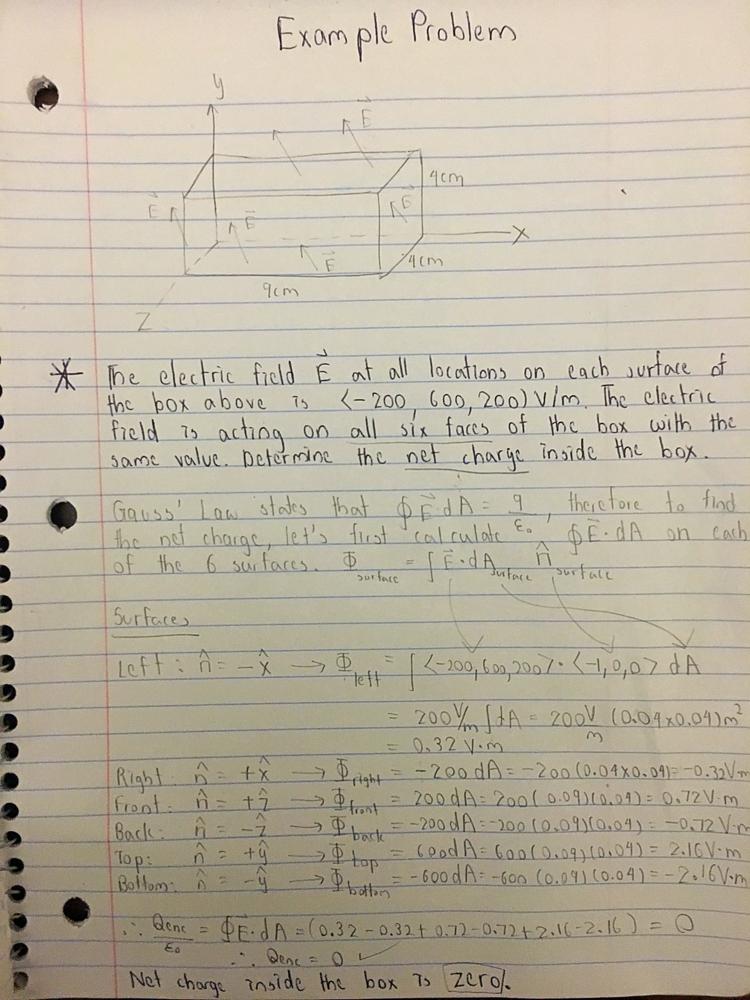 Example Problem
y
E⃗
E⃗
4cm
E⃗
E⃗
E⃗
X
4cm
9cm
Z
* The electric field E⃗ at all locations on each surface of
the box above is <-200, 600, 200> V/m. The electric
field is acting on all six faces of the box with the
same value. Determine the net charge inside the box.
Gauss' Law states that ∮E⃗·dA = q/ε₀, therefore to find
the net charge, let's first calculate ∮E⃗·dA on each
of the 6 surfaces. Φsurface = ∫E⃗·dAsurface n̂surface
Surfaces
Left: n̂ = -x̂ → Φleft = ∫<-200,600,200>·<-1,0,0> dA
= 200 V/m ∫dA = 200 V/m (0.04x0.04)m²
= 0.32 V·m
Right: n̂ = +x̂ → Φright = -200dA = -200(0.04x0.04) = -0.32V·m
Front: n̂ = +ẑ → Φfront = 200dA = 200(0.09)(0.04) = 0.72V·m
Back: n̂ = -ẑ → Φback = -200dA = -200(0.09)(0.04) = -0.72V·m
Top: n̂ = +ŷ → Φtop = 600dA = 600(0.09)(0.04) = 2.16V·m
Bottom: n̂ = -ŷ → Φbottom = -600dA = -600(0.09)(0.04) = -2.16V·m
∴ Qenc/ε₀ = ∮E⃗·dA = (0.32-0.32+0.72-0.72+2.16-2.16) = 0
∴ Qenc = 0 ✓
Net charge inside the box is zero.